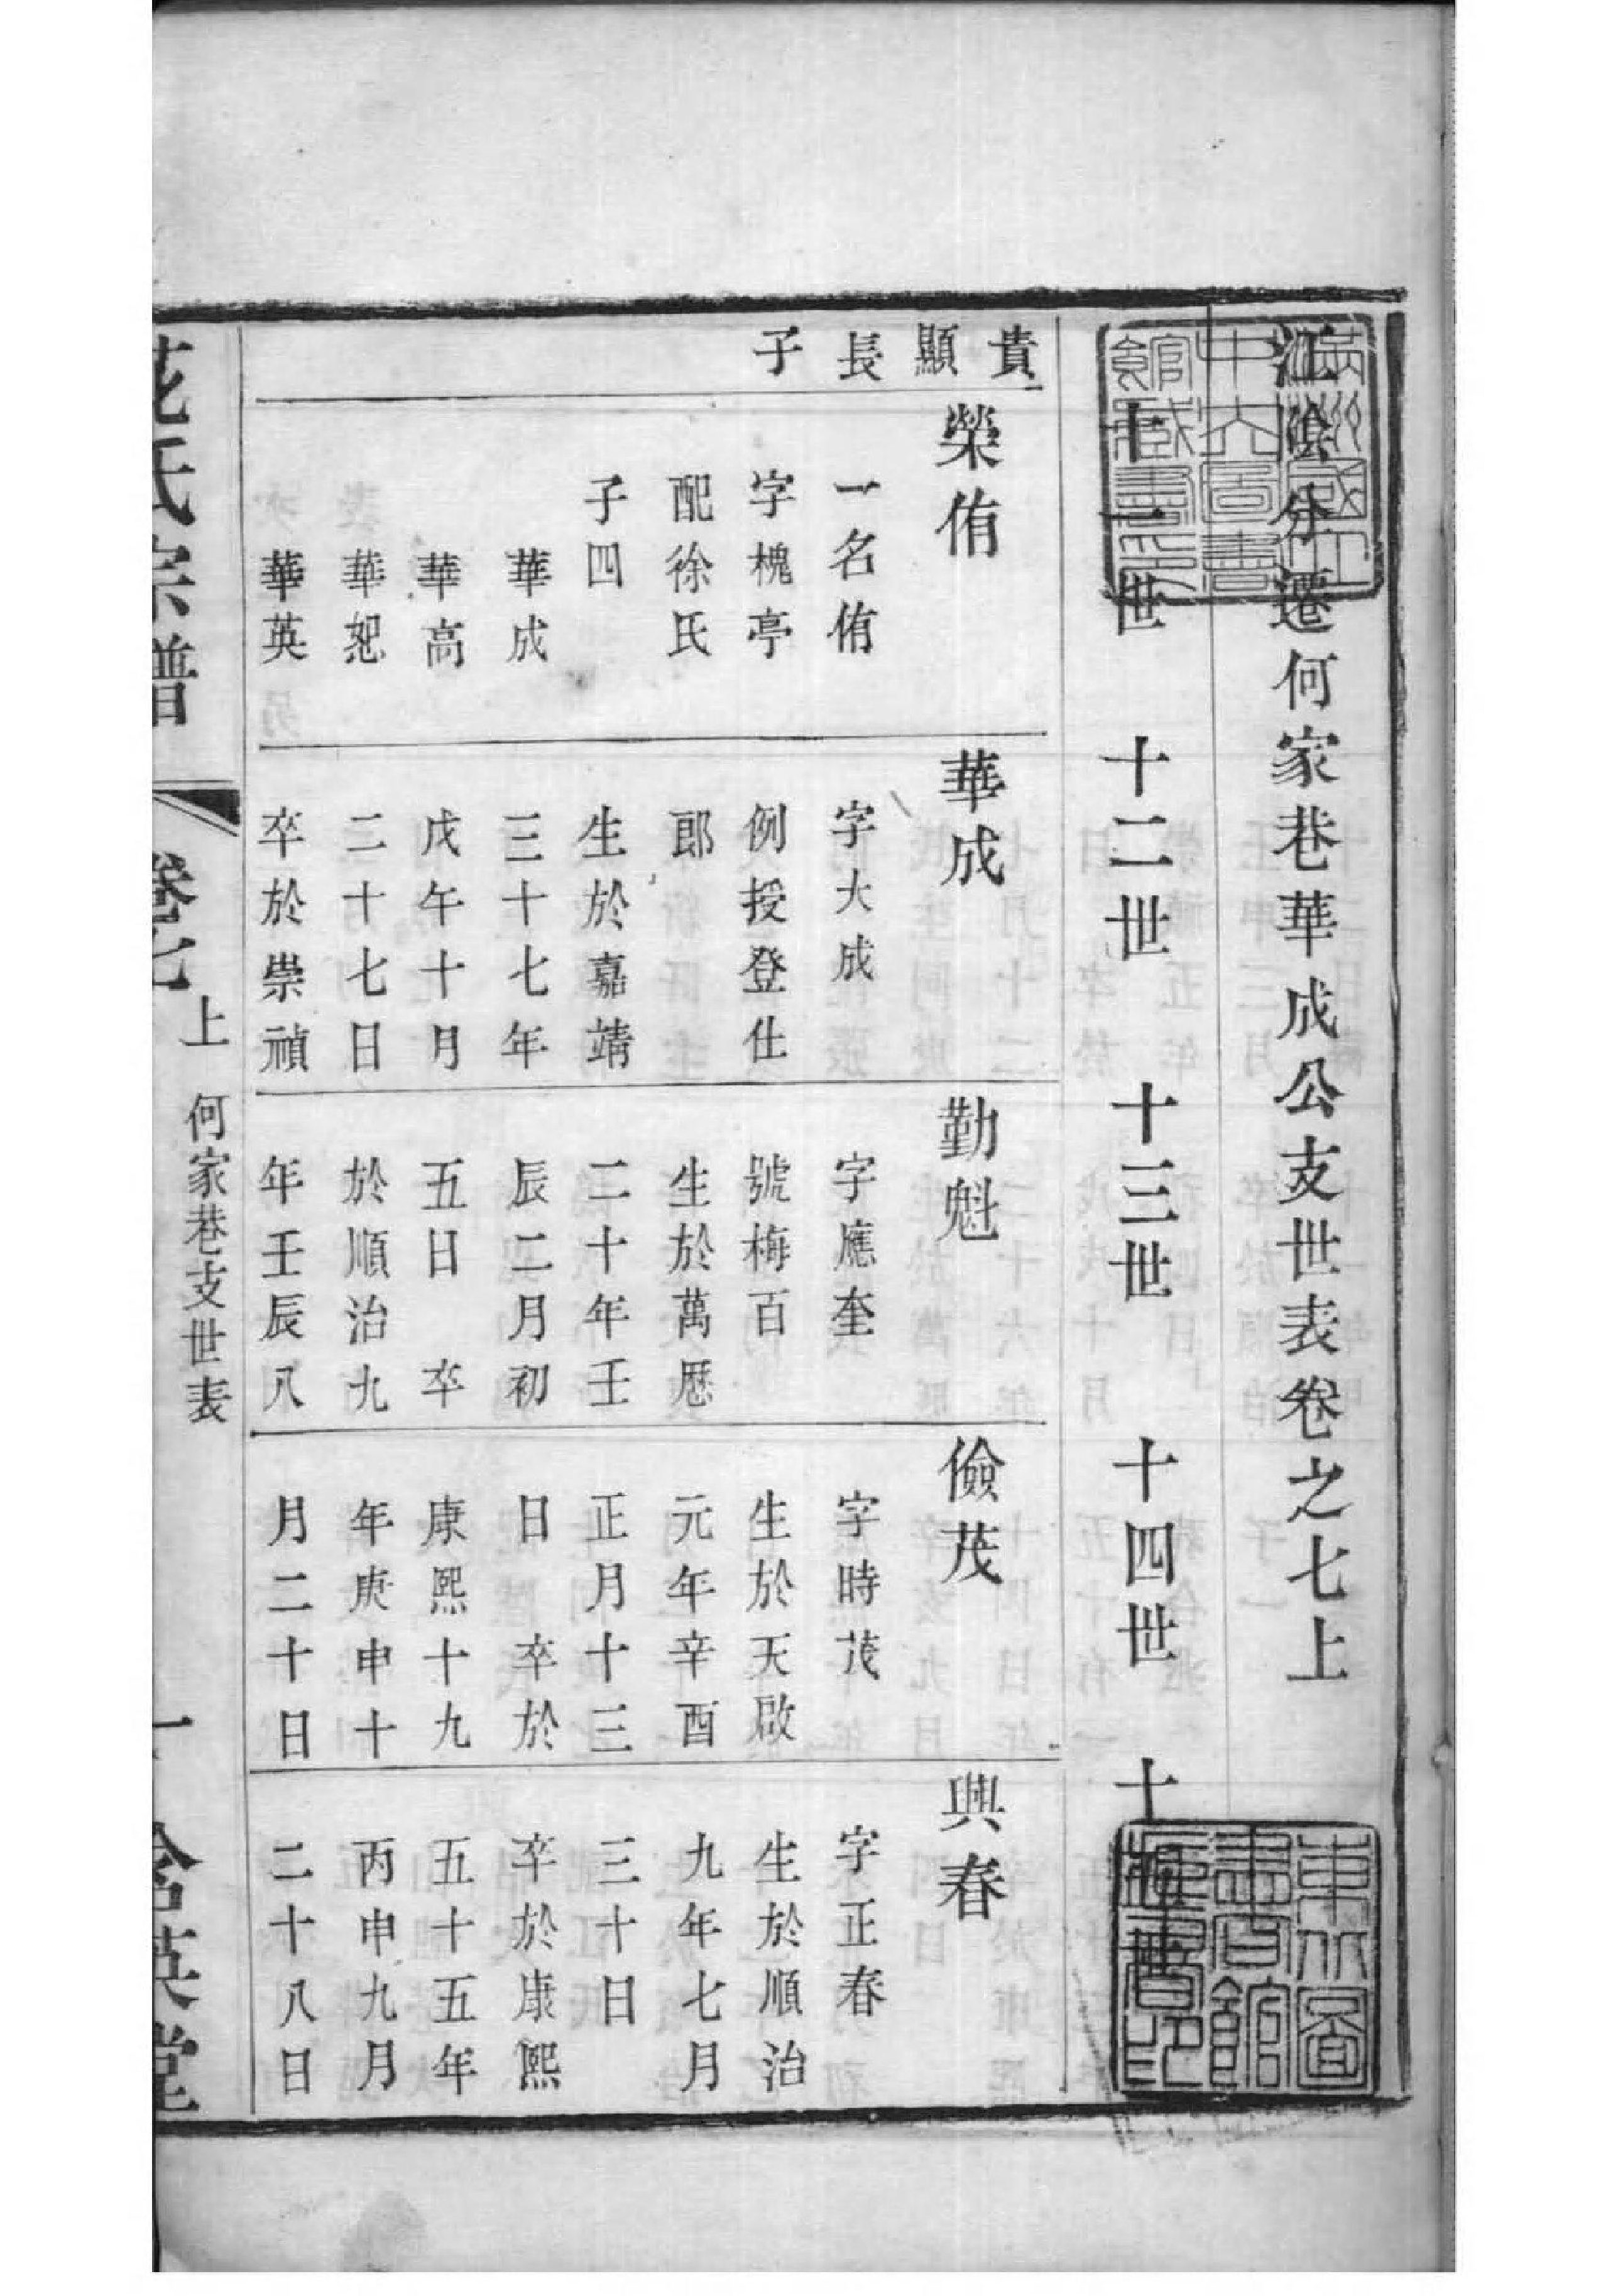 江陰分遷何家巷華成公支世表卷之七上
十一世
十二世
十三世
十四世
十五世
貴
顯
長
子
榮侑
一名侑
字槐亭
配徐氏
子四
華成
華高
華恕
華英
華成
字大成
例授登仕
郎
生於嘉靖
三十七年
戊午十月
二十七日
卒於崇禎
勤魁
字應奎
號梅百
生於萬厯
二十年壬
辰二月初
五日 卒
於順治九
年壬辰八
儉茂
字時茂
生於天啟
元年辛酉
正月十三
日 卒於
康熙十九
年庚申十
月二十日
興春
字正春
生於順治
九年七月
三十日
卒於康熙
五十五年
丙申九月
二十八日
氏宗譜
卷七
上
何家巷支世表
一
含英堂
東北圖
書館